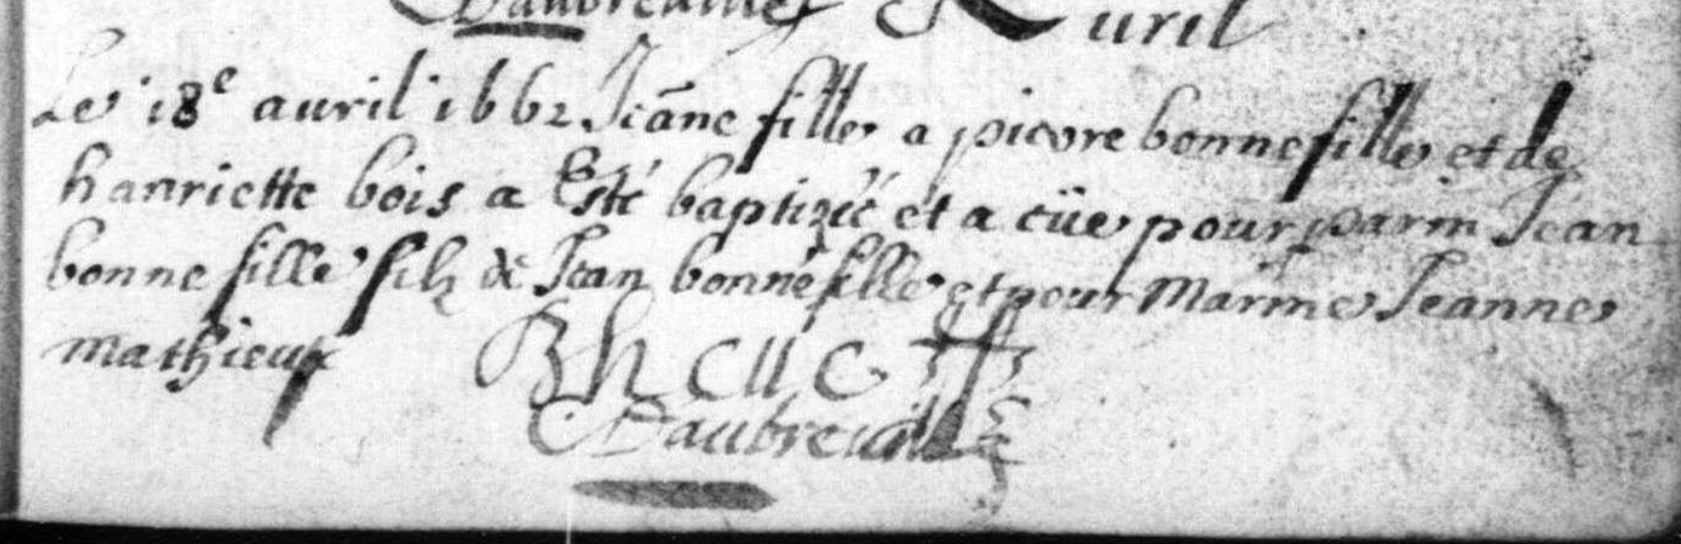 Daubreville Auril
Le 18e auril 1662 Jeāne fille a piere bonnefille et de
hanriette bois a Esté baptizéé et a eüe pour parin Jean
bonnefille filz de Jean bonnefille et pour Marine Jeanne
Mathieux
Daubreville